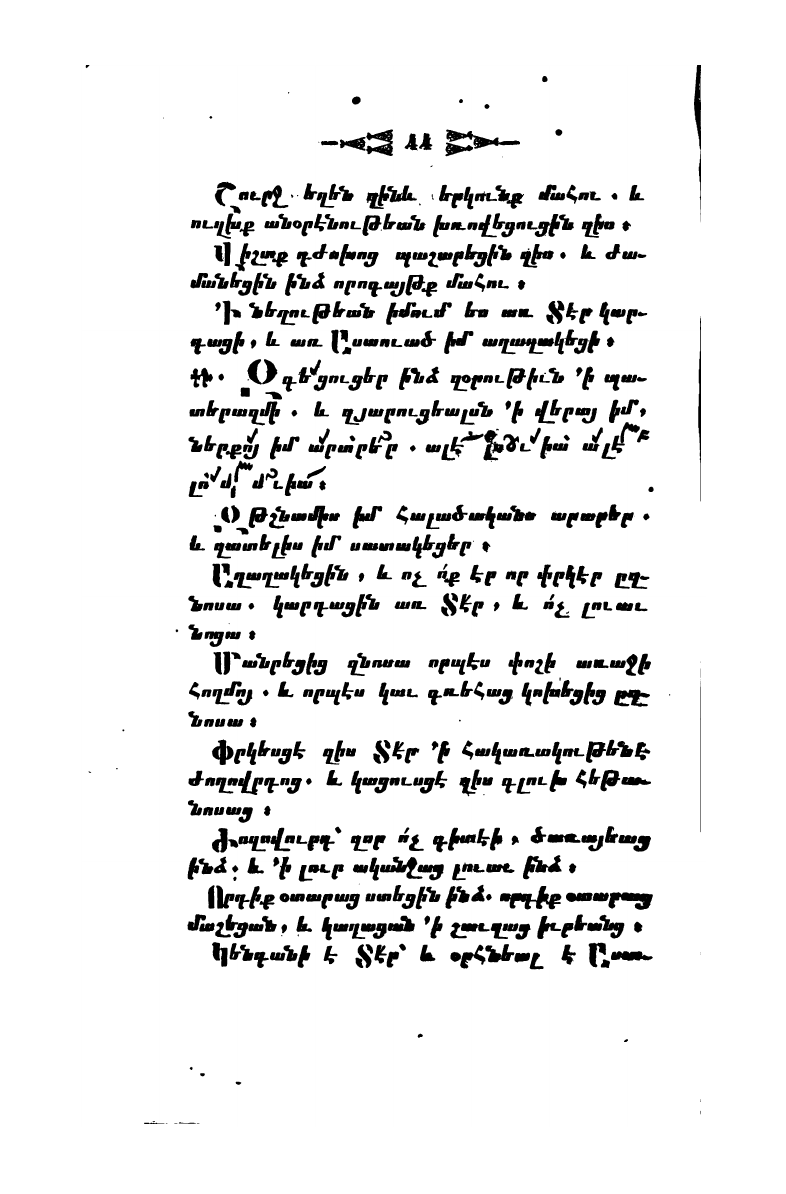 44
Շուրջ եղեն զինև երկունք մահու . և
ուղխք անօրէնութեան խռովեցուցին զիս ։
Վիշտք դժոխոց պաշարեցին զիս . և ժա-
մանեցին ինձ որոգայթք մահու ։
՚Ի նեղութեան իմում ես առ Տէր կար-
դացի , և առ Աստուած իմ աղաղակեցի ։
գկ . Զգեցուցեր ինձ զօրութիւն ՚ի պա-
տերազմի . և զյարուցեալսն ՚ի վերայ իմ ,
ներքոյ իմ արարեր . ալէլուիա ալէ
լուիա ։
Զթշնամիս իմ հալածականս արարեր .
և զատելիս իմ սատակեցեր ։
Աղաղակեցին , և ոչ ոք էր որ փրկէր ըզ-
նոսա . կարդացին առ Տէր , և ոչ լուաւ
նոցա ։
Մանրեցից զնոսա որպէս փոշի առաջի
հողմոյ . և որպէս կաւ գռեհաց կոխեցից ըզ-
նոսա ։
Փրկեսցէ զիս Տէր ՚ի հակառակութենէ
ժողովրդոց . և կացուսցէ զիս գլուխ հեթա-
նոսաց ։
Ժողովուրդ՝ զոր ոչ գիտէի , ծառայեաց
ինձ . և ՚ի լուր ականջաց լուաւ ինձ ։
Որդիք օտարաց ստեցին ինձ . որդիք օտարաց
մաշեցան , և կաղացան ՚ի շաւղաց իւրեանց ։
Կենդանի է Տէր՝ և օրհնեալ է Աստ-